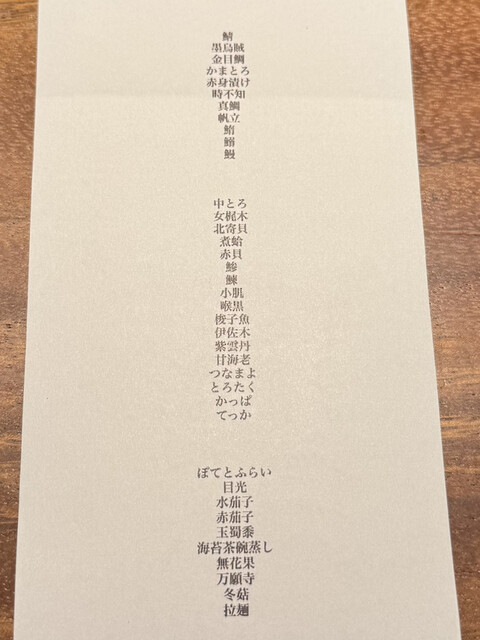 鯖
墨烏賊
金目鯛
かまとろ
赤身漬け
時不知
真鯛
帆立
鰭
鰻
中とろ
女梶木
北寄貝
煮蛤
赤貝
鯵
鰊
小肌
喉黒
梭子魚
伊佐木
紫雲丹
甘海老
つなまよ
とろたく
かっぱ
てっか
ぽてとふらい
目光
水茄子
赤茄子
玉蜀黍
海苔茶碗蒸し
無花果
万願寺
冬菇
拉麺